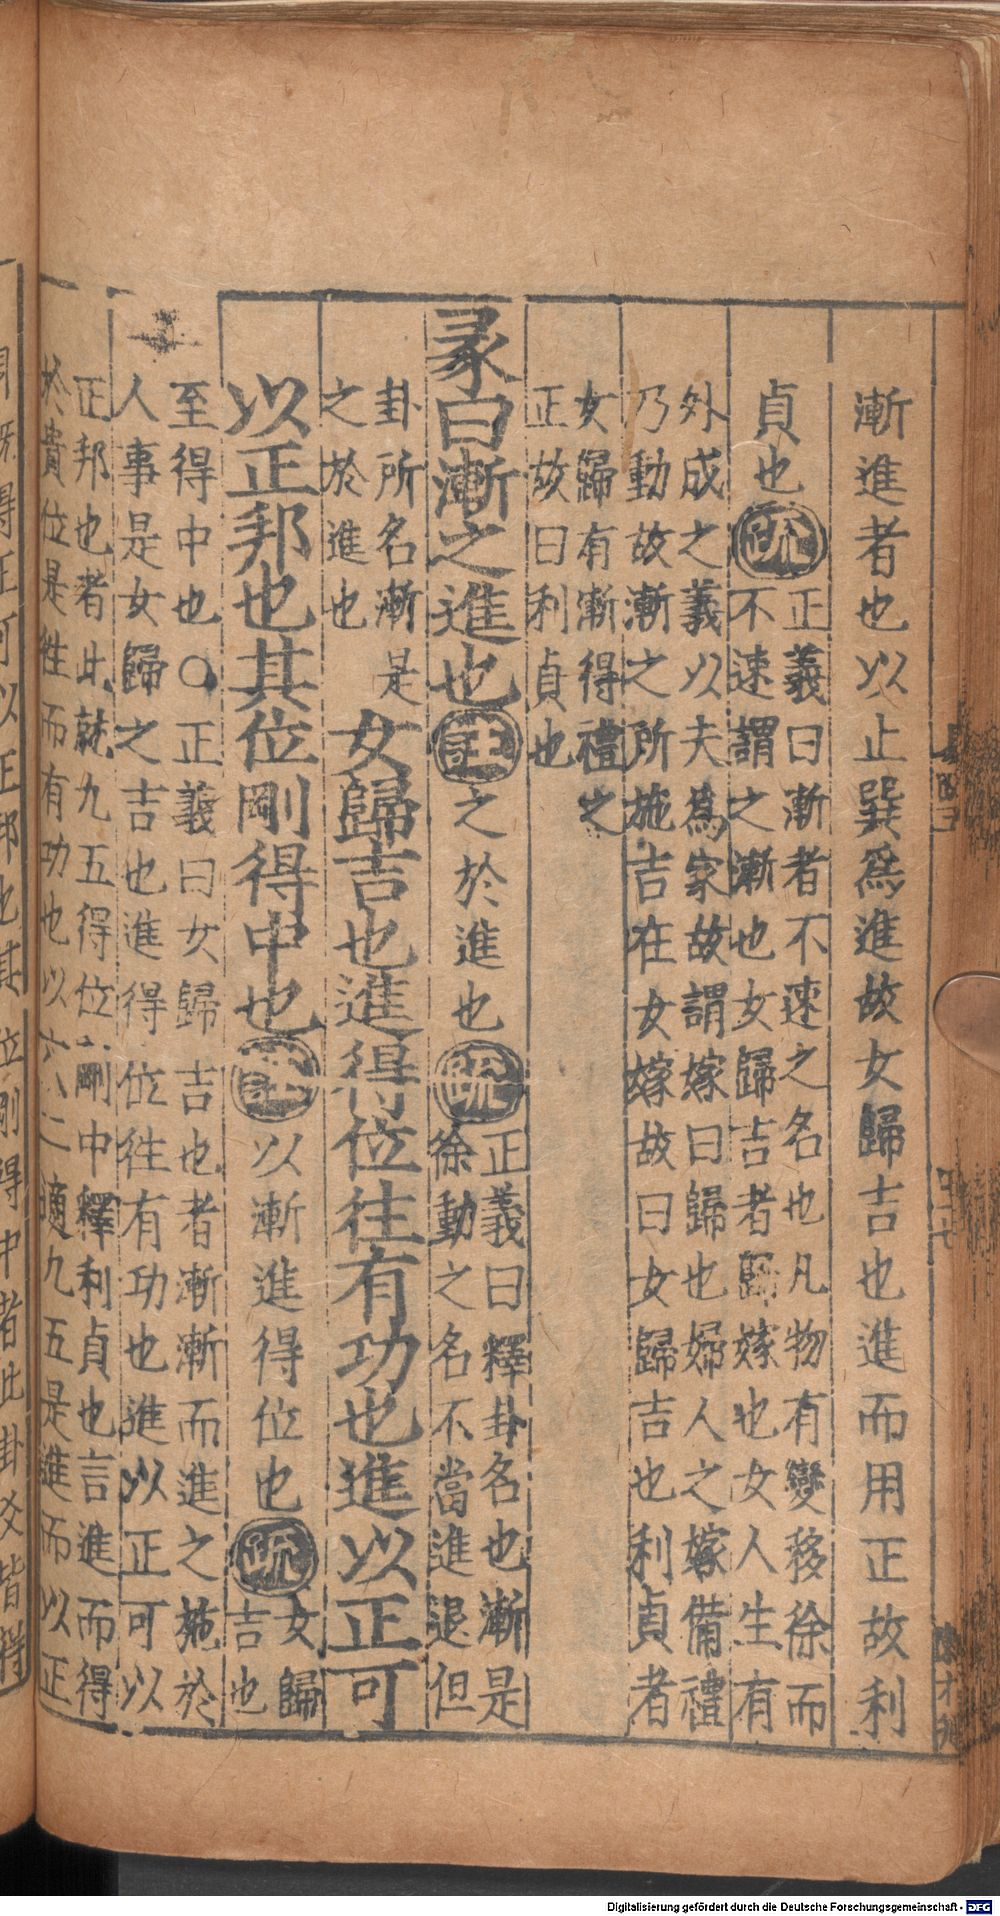 漸進者也以止巽爲進故女歸吉也進而用正故利
貞也疏
正義曰漸者不速之名也凡物有變移徐而
不速謂之漸也女歸吉者歸嫁也女人生有
外成之義以夫爲家故謂嫁曰歸也婦人之嫁備禮
乃動故漸之所施吉在女嫁故曰女歸吉也利貞者
女歸有漸得禮之
正故曰利貞也
彖曰漸之進也註之於進也疏
正義曰釋卦名也漸是
徐動之名不當進退但
卦所名漸是
之於進也
女歸吉也進得位往有功也進以正可
以正邦也其位剛得中也註以漸進得位也疏
女歸
吉也
至得中也○正義曰女歸吉也者漸漸而進之施於
人事是女歸之吉也進得位往有功也進以正可以
正邦也者此就九五得位剛中釋利貞也言進而得
於貴位是往而有功也以六二適九五是進而以正
得正可以正邦也其位剛得中者此卦爻皆得
Digitalisierung gefördert durch die Deutsche Forschungsgemeinschaft - DFG